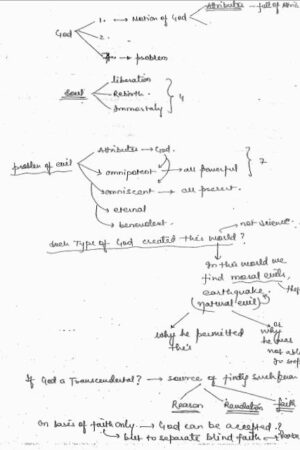 Attributes — full of
1. → Notion of God
God
2.
→ problem
liberation
Soul
Rebirth.
4
Immortaly
Attributes → God.
problem of evil
omnipotent → all powerful
7
omniscent → all present.
eternal
benevolent.
not science
such Type of God created this world?
In this world we
find moral evils,
earthquake.
(natural evil)
why he permitted
this
or
why
he was
not able
If God a Transcendental? → source of
Reason Revelation faith
On basis of faith only → God can be accepted?
but to separate blind faith →